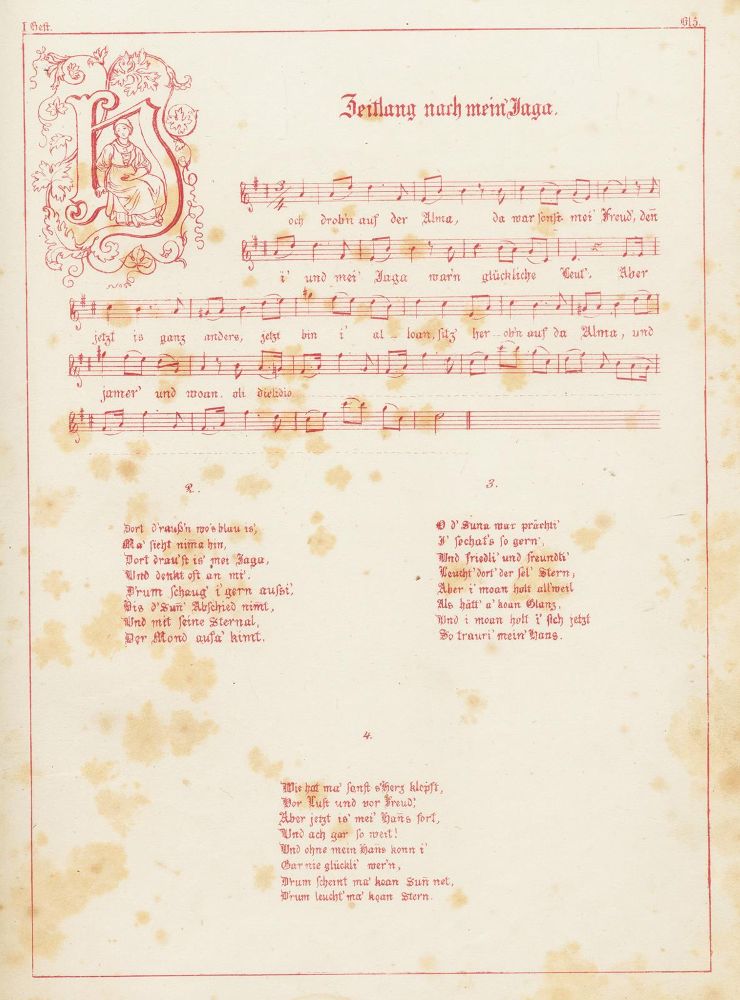 I Heft.
Bl 5.
Zeitlang nach mein' Jaga.
Hoch drob'n auf der Alma, da war sonst mei' Freud', deñ
i' und mei' Jaga war'n glückliche Leut'. Aber
jetzt is ganz anders, jetzt bin i' al - loan, sitz' her - ob'n auf da Alma, und
jamer' und woan. oli dielidio
2.
Dort d'rauß'n wo's blau is',
Ma' sieht nim̃a hin,
Dort drau'st is' mei' Jaga,
Und denkt oft an mi'.
D'rum schaug' i' gern aussi'
Bis d'Suñ' Abschied nim̃t,
Und mit seine Sternal,
Der Mond aufa' kim̃t.
3.
O d' Suna war prächti'
I' sechat's so gern',
Und friedli' und freundli'
Leucht' dort' der sel' Stern,
Aber i' moan holt all'weil
Als hätt' a' koan Glanz,
Und i moan holt i' sich jetzt
So trauri' mein' Hans.
4.
Wie hat ma' sonst s'Herz klopft,
Vor Lust und vor Freud!
Aber jetzt is' mei' Hañs fort,
Und ach gar so weit!
Und ohne mein Hans konn i'
Gar nie glückli' wer'n,
D'rum scheint ma' koan Suñ net,
D'rum leucht' ma' koan Stern.